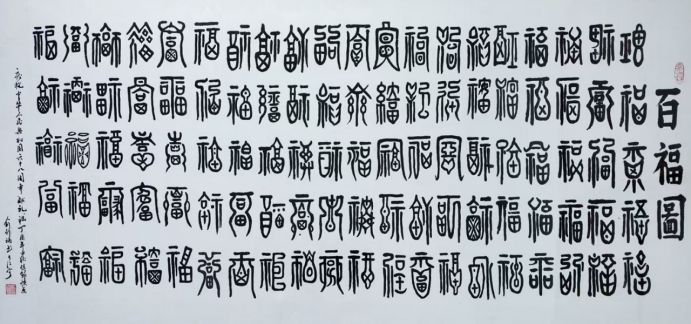 百福圖
福福福福福
福福福福福
福福福福福
福福福福福
福福福福福
福福福福福
福福福福福
福福福福福
福福福福福
福福福福福
福福福福福
福福福福福
福福福福福
福福福福福
福福福福福
福福福福福
福福福福福
福福福福福
福福福福福
福福福福福
中华人民共和国六十八周年献礼